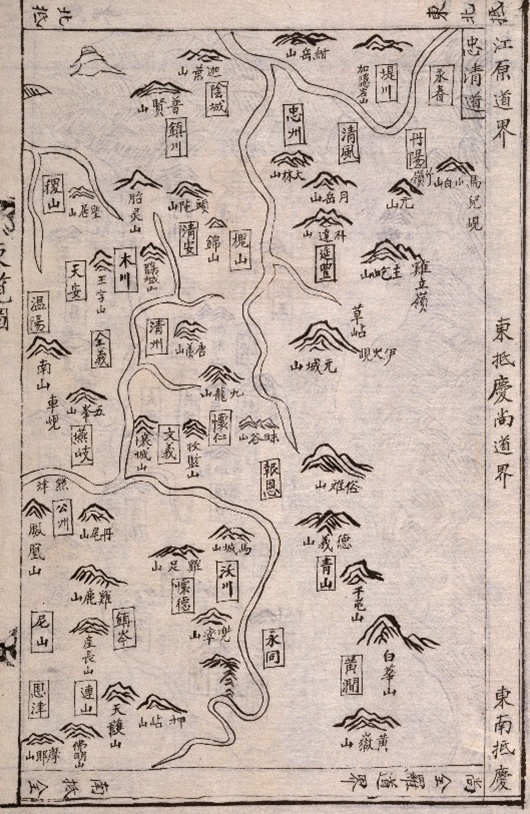 忠清道
江原道界
東抵慶尚道界
東南抵慶
尚全羅道界
南抵全
北抵
東北抵
永春
堤川
紺岳山
迦葉山
陰城
普賢山
鎮川
忠州
清風
丹陽
竹嶺
小白山
馬兒峴
天林山
月岳山
元山
稷山
聖居山
胎靈山
頭陀山
清安
錦山
槐山
延豐
主屹山
雞立嶺
天安
王字山
木川
温陽
全義
清州
唐羨山
草岾
伊火峴
元城山
南山
車峴
五峯山
九龍山
燕岐
文義
懷仁
昧谷山
報恩
俗離山
熊津
公州
丹尾山
鳳凰山
馬城山
德義山
青山
千屯山
雞足山
懷德
沃川
雞鹿山
尼山
鎮岑
産長山
永同
白華山
黄澗
恩津
連山
天護山
押岾山
黄嶽山
摩耶山
佛明山
東覽圖